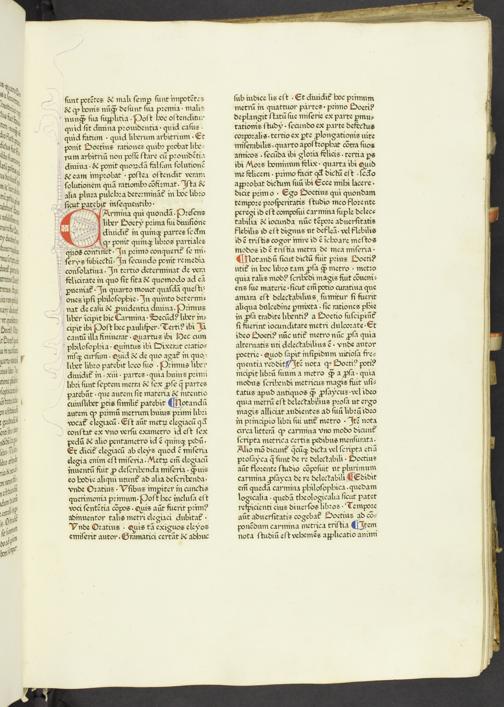 sunt potẽtes & mali semꝑ sunt impotẽtes
& ꝙ bonis nunꝗ̃ desunt sua premia · malis
nunꝗ̃ sua supplitia · Post hoc ostenditur
quid sit diuina prouidentia · quid casus ·
quid fatum · quid liberum arbitrium · Et
ponit Boetius rationes quibꝰ probat libe-
rum arbitriũ non posse stare cũ prouidẽtia
diuina · & ponit quorũdã falsam solutionẽ
& eam improbat · postea ostendit veram
solutionem
alia plura pulchra determinãt in hoc libro
sicut patebit insequentibꝰ ·
CArmina qui quondã · Presens
liber Boetij prima sui diuisione
diuidit̃ in quinꝗ partes scd̃m
ꝙ ponit quinꝗ libros partiales
quos continet · In primo conquerit̃ se mi-
serijs subiectũ · In secundo ponit remedia
consolatiua · In tertio determinat de vera
felicitate in quo sit sita & quomodo ad eã
In quarto mouet quasdã questi-
ones ipsi philosophie · In quinto determi-
nat de casu & ꝓuidentia diuina · Primus
liber incipit hic Carmina · Secũdꝰ liber in-
cipit ibi Post hec paulisper · Tertiꝰ ibi Iã
cantũ illa finierat · Quartus ibi Hec cum
philosophia · Quintus ibi Dixerat oratiõ-
isꝗ cursum · Quid & de quo agat̃ in quo-
libet libro patebit loco suo · Primus liber
diuidit̃ in · xiii · partes · quia huius primi
libri sunt septem metra & sex ꝓse ꝗ partes
patebũt · que autem sit materia & intentio
cuiuslibet ptis similiꝰ patebit Notandũ
autem ꝙ primũ metrum huius primi libri
vocat̃ elegiacũ · Est aũt metꝝ elegiacũ ꝙd
cõstat ex vno versu exametro id est sex
pedũ & alio pentametro id ẽ quinꝗ pedũ ·
Et dicit̃ elegiacũ ab eleys quod ẽ miseria
elegia enim est miseria · Metꝝ em̃ elegiacũ
inuentũ fuit ꝓ describenda miseria · ꝙuis
eo hodie aliqui utunt̃ ad alia describenda ·
vnde Oratius · Vsibus impiter iunctis
querimonia primum · Post hec inclusa est
voci sentẽtia cõpos · Quis aũt fuerit primꝰ
adinuentor talis metri elegiaci dubitat̃ ·
Vnde Oratius · Quis tñ exiguos eleyos
emiserit autor · Gramatici certãt & adhuc
sub iudice lis est · Et diuidit̃ hoc primum
metrũ in quattuor partes · primo Boetiꝰ
deplangit statũ sue miserie ex parte pmu-
tationis studij · secundo ex parte defectus
corporalis · tertio ex pte plongationis vite
miserabilis · quarto apostrophat cõtra suos
amicos · secũda ibi gloria felicis · tertia ps
ibi Mors hominum felix · quarta ibi Quid
me felicem · primo facit qd̃ dictũ est · scd̃o
approbat dictum suũ ibi Ecce mihi lacere ·
dicit primo · Ego Boetius qui quondam
tempore prosperitatis studio meo florente
peregi id est composui carmina suple delec-
tabilia & iocunda nũc tẽpore aduersitatis
flebilis id est dignus ut defleã · vel flebilis
id ẽ tristis cogor inire id ẽ ichoare mestos
modos id ẽ tristia metra de mea miseria ·
Notandũ sicut dictũ fuit prius Boetiꝰ
utit̃ in hoc libro tam ꝓsa ꝗ̃ metro · metro
quia talis modꝰ scribendi magis fuit conueni-
ens sue materie · sicut em̃ potio curatiua que
amara est delectabilius sumitur si fuerit
aliqua dulcedine pmixta · sic rationes phie
in ꝓsa tradite libentiꝰ a Boetio suscipiũt̃
si fuerint iocunditate metri dulcorate · Et
ideo Boetiꝰ nũc utit̃ metro nũc ꝓsa quia
alternatis uti delectabilius ẽ · vnde autor
poetrie · quod sapit insipidum uitiosa fre-
quentia reddit Itẽ nota ꝙ Boetiꝰ potiꝰ
incipit librũ suum a metro ꝗ̃ a ꝓsa · quia
modus scribendi metricus magis fuit usi-
tatus apud antiquos ꝗ̃ ꝓsaycus · vel ideo
quia metrũ est delectabilius prosa ut ergo
magis alliciat audientes ad suũ librũ ideo
in principio libri sui utit̃ metro · Itẽ nota
circa literã ꝙ carmina vno modo dicunt̃
scripta metrica certis pedibus mensurata ·
Alio mõ dicunt̃ quecũꝗ dicta vel scripta etiã
prosayca ꝗ sunt de re delectabili · Boetius
aũt florente studio cõposuit ut plurimum
carmina ꝓsayca de re delectabili Edidit
em̃ quedã carmina philosophica · quedam
logicalia · quedã theologicalia sicut patet
respicienti eius diuersos libros · Tempore
aũt aduersitatis cogebat̃ Boetius ad cõ-
ponendum carmina metrica tristia Item
nota studiũ est vehemẽs applicatio animi